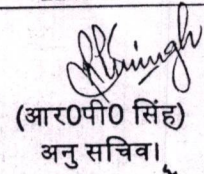 (आर0पी0 सिंह)
अनु सचिव।